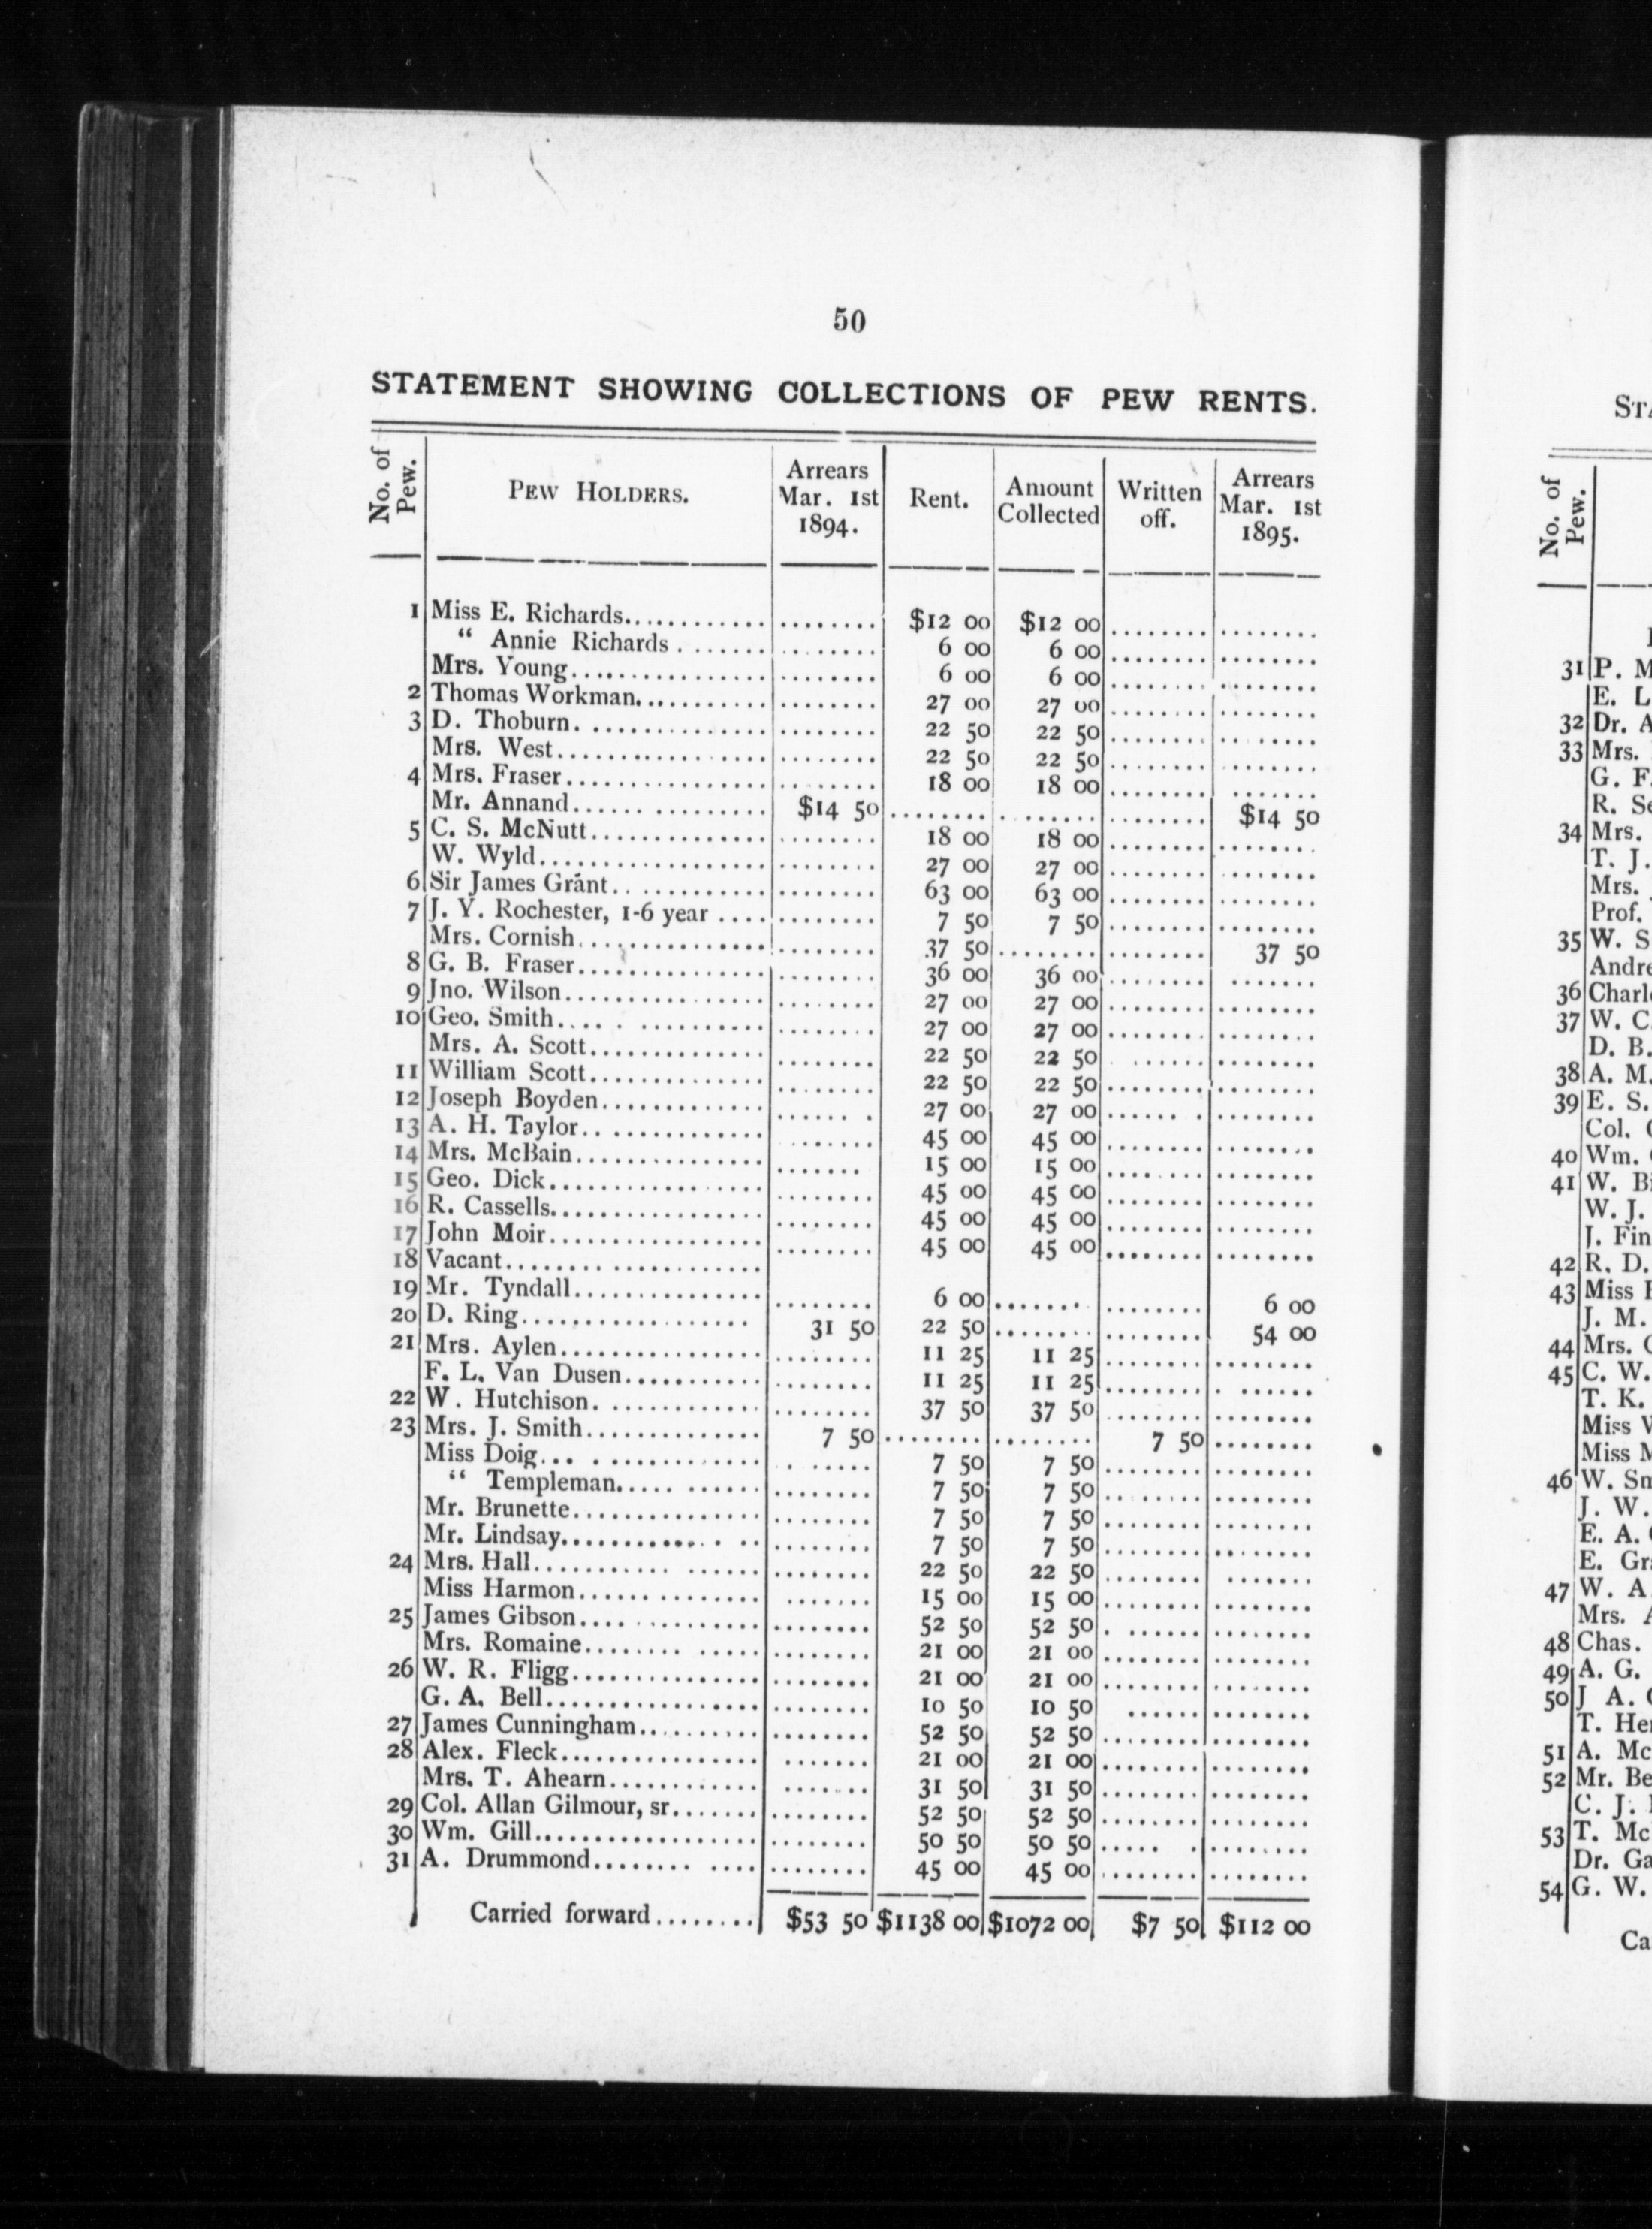 50
STATEMENT SHOWING COLLECTIONS OF PEW RENTS.
No. of Pew. PEW HOLDERS. Arrears Mar. 1st 1894. Rent. Amount Collected Written off. Arrears Mar. 1st 1895.
1 Miss E. Richards............ ........ $12 00 $12 00 ........ ........
" Annie Richards ....... ........ 6 00 6 00 ........ ........
Mrs. Young................ ........ 6 00 6 00 ........ ........
2 Thomas Workman........... ........ 27 00 27 00 ........ ........
3 D. Thoburn................ ........ 22 50 22 50 ........ ........
Mrs. West................. ........ 22 50 22 50 ........ ........
4 Mrs. Fraser................ ........ 18 00 18 00 ........ ........
Mr. Annand............... $14 50 ........ ........ ........ $14 50
5 C. S. McNutt.............. ........ 18 00 18 00 ........ ........
W. Wyld.................. ........ 27 00 27 00 ........ ........
6 Sir James Grant............. ........ 63 00 63 00 ........ ........
7 J. Y. Rochester, 1-6 year .... ........ 7 50 7 50 ........ ........
Mrs. Cornish............... ........ 37 50 ........ ........ 37 50
8 G. B. Fraser............... ........ 36 00 36 00 ........ ........
9 Jno. Wilson................ ........ 27 00 27 00 ........ ........
10 Geo. Smith................ ........ 27 00 27 00 ........ ........
Mrs. A. Scott.............. ........ 22 50 22 50 ........ ........
11 William Scott.............. ........ 22 50 22 50 ........ ........
12 Joseph Boyden............. ........ 27 00 27 00 ........ ........
13 A. H. Taylor............... ........ 45 00 45 00 ........ ........
14 Mrs. McBain............... ........ 15 00 15 00 ........ ........
15 Geo. Dick................. ........ 45 00 45 00 ........ ........
16 R. Cassells................. ........ 45 00 45 00 ........ ........
17 John Moir................. ........ 45 00 45 00 ........ ........
18 Vacant....................
19 Mr. Tyndall............... ........ 6 00 ........ ........ 6 00
20 D. Ring................... 31 50 22 50 ........ ........ 54 00
21 Mrs. Aylen................ ........ 11 25 11 25 ........ ........
F. L. Van Dusen........... ........ 11 25 11 25 ........ ........
22 W. Hutchison.............. ........ 37 50 37 50 ........ ........
23 Mrs. J. Smith.............. 7 50 ........ ........ 7 50 ........
Miss Doig................. ........ 7 50 7 50 ........ ........
" Templeman........... ........ 7 50 7 50 ........ ........
Mr. Brunette............... ........ 7 50 7 50 ........ ........
Mr. Lindsay................ ........ 7 50 7 50 ........ ........
24 Mrs. Hall.................. ........ 22 50 22 50 ........ ........
Miss Harmon............... ........ 15 00 15 00 ........ ........
25 James Gibson............... ........ 52 50 52 50 ........ ........
Mrs. Romaine.............. ........ 21 00 21 00 ........ ........
26 W. R. Fligg................ ........ 21 00 21 00 ........ ........
G. A. Bell.................. ........ 10 50 10 50 ........ ........
27 James Cunningham.......... ........ 52 50 52 50 ........ ........
28 Alex. Fleck................ ........ 21 00 21 00 ........ ........
Mrs. T. Ahearn............ ........ 31 50 31 50 ........ ........
29 Col. Allan Gilmour, sr....... ........ 52 50 52 50 ........ ........
30 Wm. Gill.................. ........ 50 50 50 50 ........ ........
31 A. Drummond............. ........ 45 00 45 00 ........ ........
Carried forward........ $53 50 $1138 00 $1072 00 $7 50 $112 00
No. of Pew.
31 P.
E.
32 Dr.
33 Mrs.
G.
R.
34 Mrs.
T. J.
Mrs.
Prof.
35 W.
36
37 W. C.
D. B.
38 A. M.
39 E. S.
Col.
40 Wm.
41 W.
W. J.
J.
42 R. D.
43 Miss
J. M.
44 Mrs.
45 C. W.
T. K.
Miss
Miss
46 W.
J. W.
E. A.
E.
47 W. A
Mrs.
48 Chas.
49 A. G.
50 J A.
T.
51 A.
52 Mr.
C. J.
53 T.
Dr.
54 G. W.